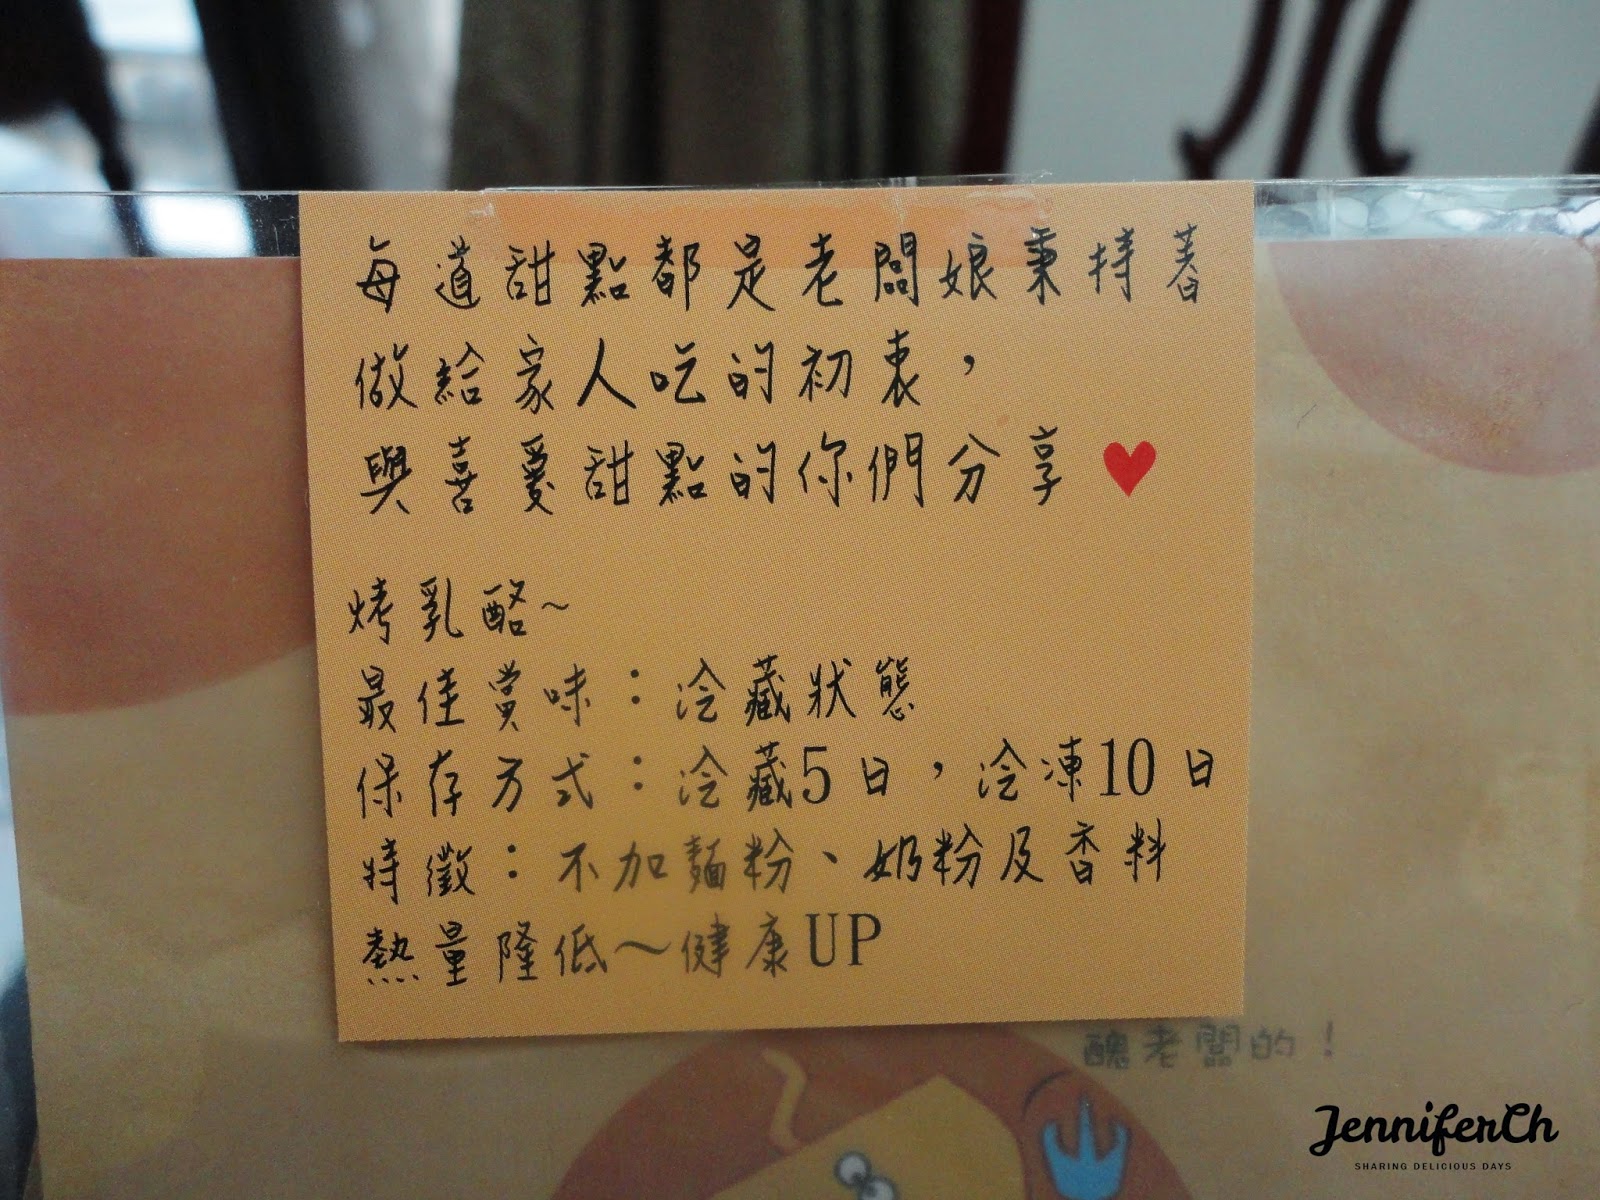 每道甜點都是老闆娘秉持著
做給家人吃的初衷，
與喜愛甜點的你們分享♥
烤乳酪~
最佳賞味：冷藏狀態
保存方式：冷藏5日，冷凍10日
特徵：不加麵粉、奶粉及香料
熱量降低～健康UP
醜老闆的！
JenniferCh
SHARING DELICIOUS DAYS